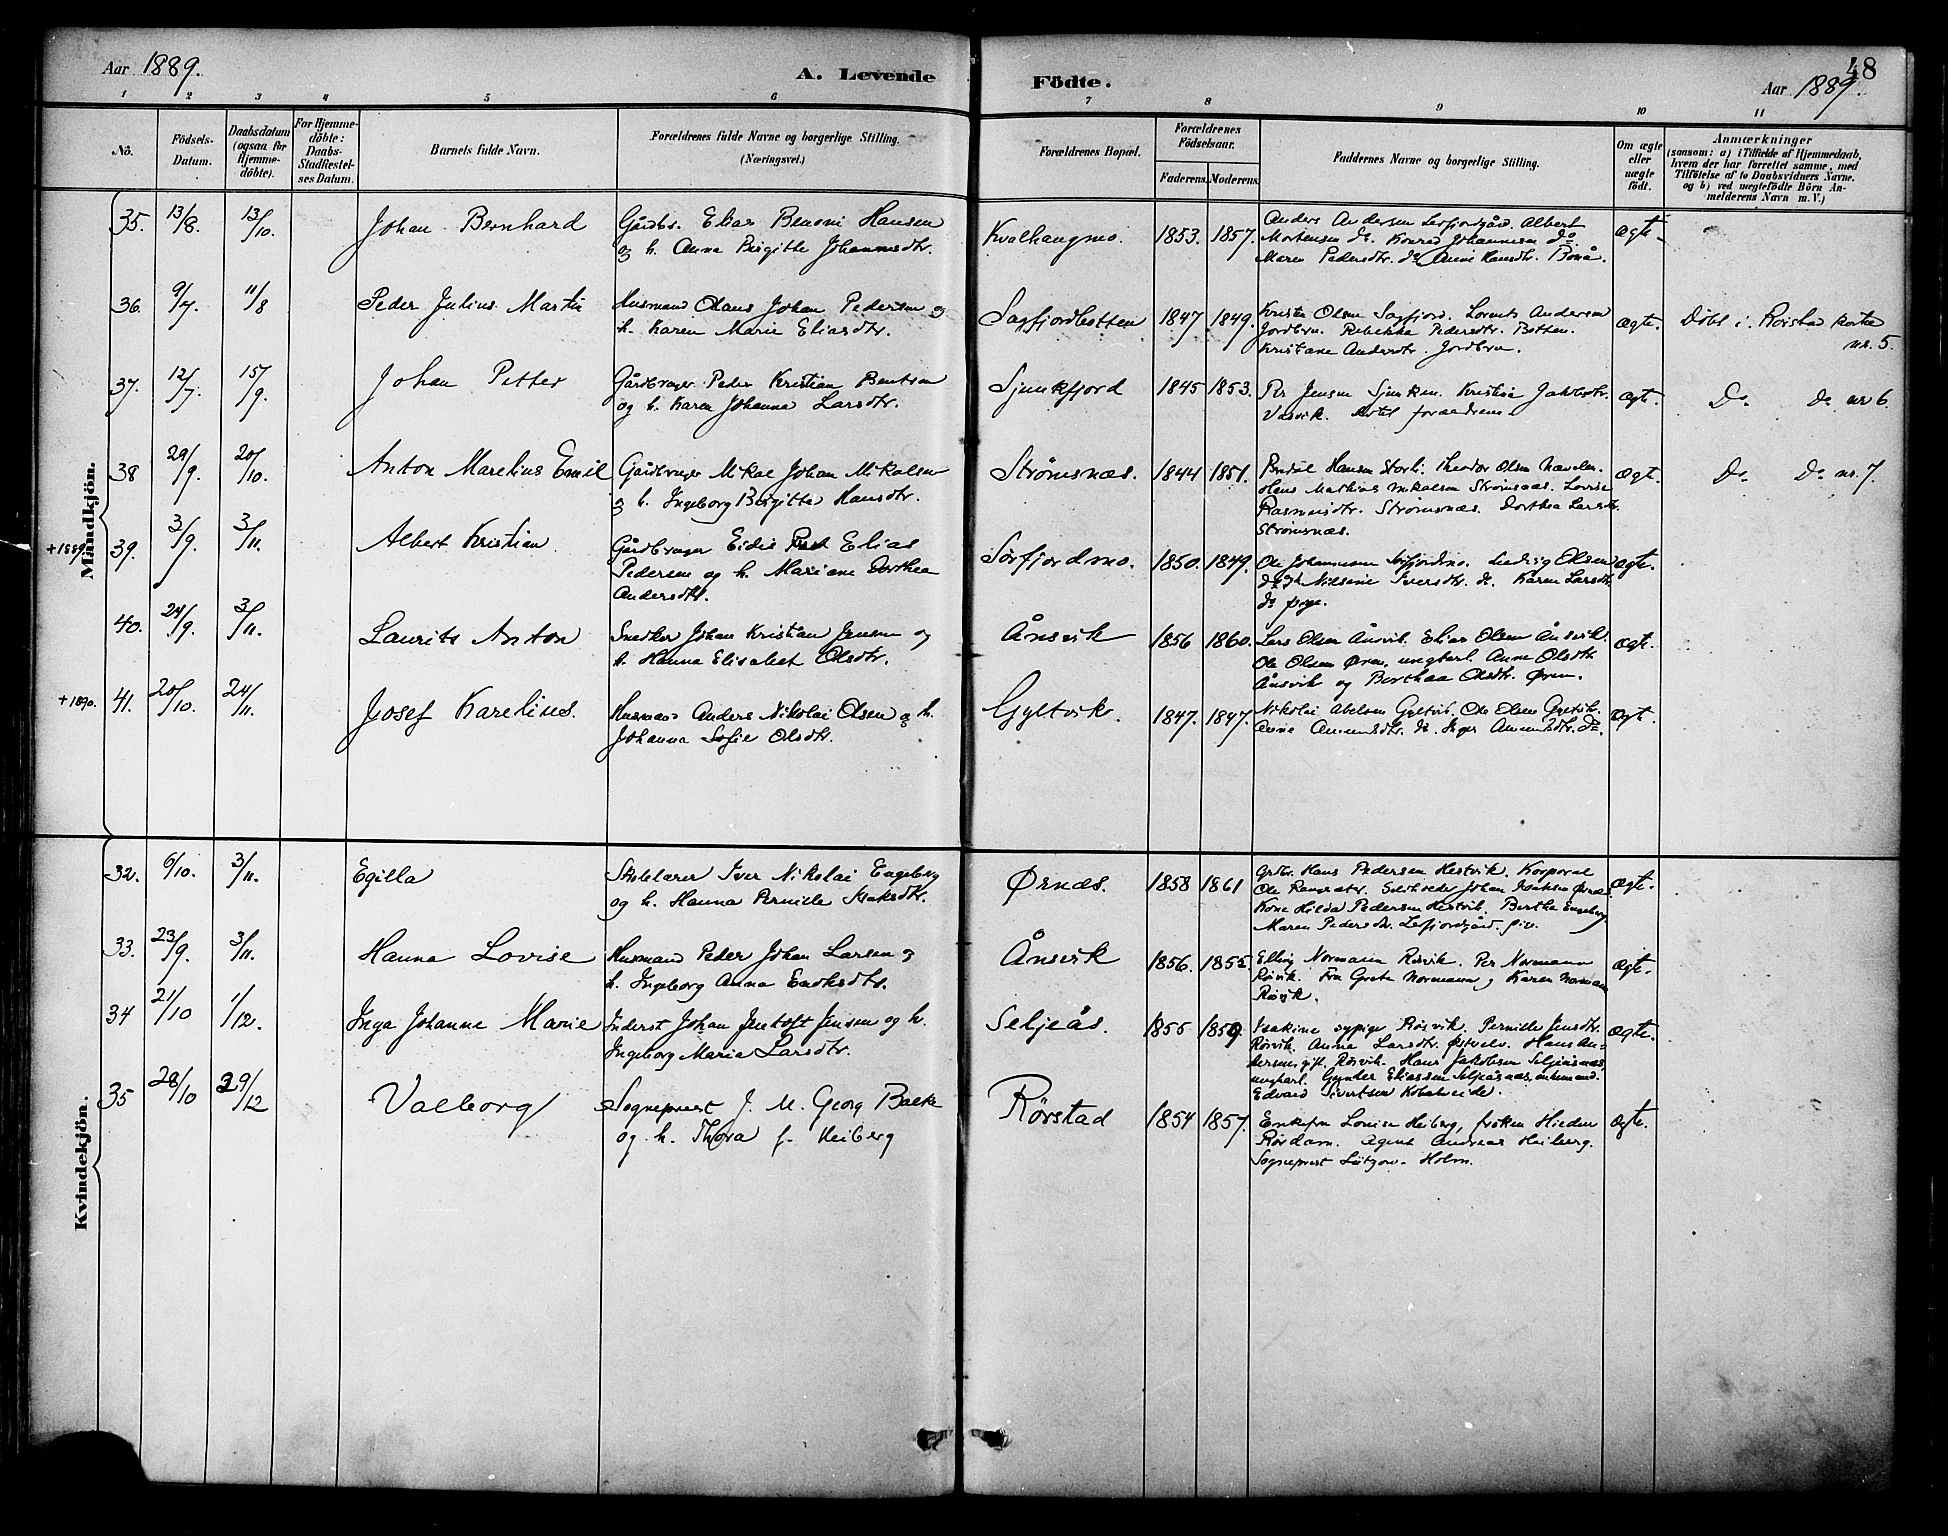 Aar 1889. A. Levende Födte. Aar 1889. 48
1 2 3 4 5 6 7 8 9 10 11
No. Födsels-Datum. Daabsdatum (ogsaa for Hjemmedöbte). For Hjemmedöbte: Daabs-Stadfæstelses Datum. Barnets fulde Navn. Forældrenes fulde Navne og borgerlige Stilling. (Næringsvei.) Forældrenes Bopæl. Forældrenes Födselsaar. Faderens. Moderens. Faddernes Navne og borgerlige Stilling. Om ægte eller uægte födt. Anmærkninger (saasom: a) i Tilfælde af Hjemmedaab, hvem der har forrettet samme, med Tilföielse af to Daabsvidners Navne, og b) ved uegtefödte Börn Anmelderens Navn m. V.)
Mandkjön.
35. 13/8. 13/10. Johan Bernhard Gårdbr. Elias Benoni Hansen Kvalhaugmo. 1853. 1857. Anders Andersen Leifjordgård. Albert ægte.
og h. Anna Birgitte Johannesdtr. Mortensen do. Konrad Johannesen do.
Maren Pedersdtr. do Anne Hansdtr. Bonå.
36. 9/7. 11/8 Peder Julius Martin Husmand Olaus Johan Pedersen og Sagfjordbotten 1847 1849. Olsen Sagfjord. Lorents Andersen ægte. Döbt i Rörstad kirke
h. Karen Marie Eliasdtr. Jordbru. Rebekka Pedersdtr. Botten. nr. 5.
Kristane Andersdtr. Jordbru.
37. 12/7. 15/9. Johan Petter Gårdbruger Peder Kristian Bentsen Sjunkfjord 1845 1853. Per Jensen Sjunken. Kristine Jakobsdtr. ægte. Do. Do nr 6.
og h. Karen Johanna Larsdtr. Vasvik. forældrene
38 29/9. 20/10. Anton Marelius Emil Gårdbruger Mikal Johan Mikalsen Strömsnæs. 1844 1851. Hansen Storli. Theodor Olsen ægte. Do. Do nr. 7.
og h. Ingeborg Birgitta Hansdtr. Hans Mathias Mikalsen Strömsnæs. Lovise
Rasmusdtr. Strömsnæs. Dorthea Larsdtr.
Strömsnæs.
+1889 39. 3/9. 3/11. Albert Kristian. Gårdbruger Eidis Elias Sörfjordmo. 1850. 1849. Ole Johannesen Sörfjordmo. Ludvig Olsen ægte.
Pedersen og h. Mariane Dorthea do Nilsine Iversdtr. do. Karen Larsdtr.
Andersdtr. do pige.
40. 24/9. 3/11. Laurits Anton Snedker Johan Kristian Jensen og Ånsvik 1856 1860. Lars Olsen Ånsvik. Elias Olsen Ånsvik. ægte.
h. Hanna Elisabet Olsdtr. Ole Olsen Ören. ungkarl. Anne Olsdtr.
Ånsvik og Berthea Olsdtr. Ören.
+1890. 41. 20/10. 24/11. Josef Karelius. Husmand Anders Nikolai Olsen og h. Gyltvik. 1847. 1847. Nikolai Abelsen Gyltvik. Ole Olsen Gyltvik. ægt.
Johanna Sofie Olsdtr. Anne Amundsdtr. do. Inger Amundsdtr. do.
Kvindekjön.
32. 6/10. 3/11. Egilla Skolelærer Iver Nikolai Engeborg Örnæs. 1858 1861 Grdbr. Hans Pedersen Hestvik. Korporal ægte.
og h. Hanna Pernille Isaksdtr. Ole Johan Isaksen Örnæs
Kone Hilda Pedersen Hestvik. Bertha Engeborg
Maren Pedersdtr. Leifjordgård. pige.
33. 23/9. 3/11. Hanna Lovise Husmand Peder Johan Larsen og Ånsvik 1856. 1855. Elling Normann Rösvik. Per Normann ægte.
h. Ingeborg Anna Enoksdtr. Rösvik. Fru Grete Normann og Karen Normann
Rösvik.
34 21/10 1/12. Inga Johanne Marie Inderst Johan Jentoft Jensen og h. Seljeås. 1855 1859. Isakine sypige Rösvik. Pernille Jensdtr. ægte.
Ingeborg Maria Larsdtr. Rösvik. Anna Larsdtr. Östvelv. Hans An-
dersen, gift, Rösvik. Hans Jakobsen Seljeåsnæs,
ungkarl. Gynter Eliassen Seljeåsnæs, enkemand.
Edvard Sivertsen Kobbelveide.
35 28/10 29/12 Valborg Sogneprest J. M. Georg Balke Rörstad 1854 1857. Enkefru Louise Heiberg, fröken ægte.
og h. Thora f. Heiberg Rördam. Agent Andreas Heiberg.
Sogneprest Lützow-Holm.